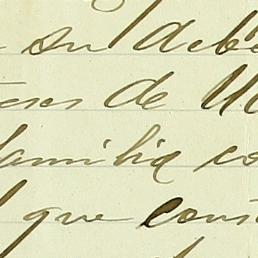 su debe
de
familia co
que cons